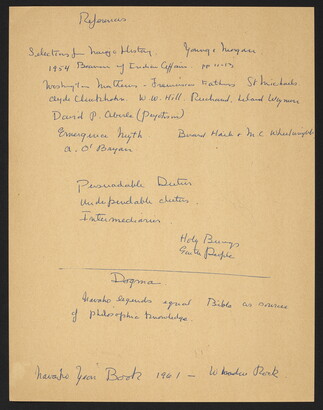 References
Selections from Navajo History. Young & Morgan
1954 Bureau of Indian Affairs. pp 11-13
Washington Matthews - Franciscan Fathers St Michaels.
Clyde Kluckhohn. W. W. Hill. Reichard. Leland Wyman
David F. Aberle (Peyotism)
Emergence Myth Berard Haile & M.C. Wheelwright
A. O'Bryan
Persuadable Deities
Undependable deities.
Intermediaries
Holy Beings
Earth People
Dogma
Navaho legends equal Bible as sources
of philosophic knowledge.
Navaho Year Book 1961 - Window Rock